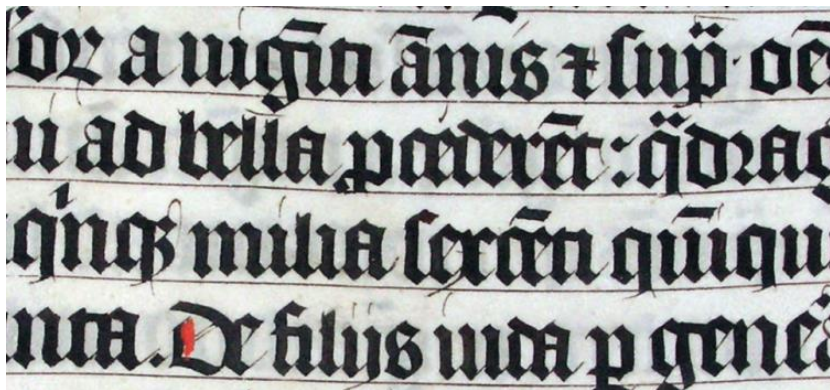 ior a uigīti ānis ⁊ sup̄ · oē
ui ad bella ꝓcederēt : q̄drag
qⁱnqꝫ milia sexcēti quīqu
nta . De filijs iuda ꝑ genea